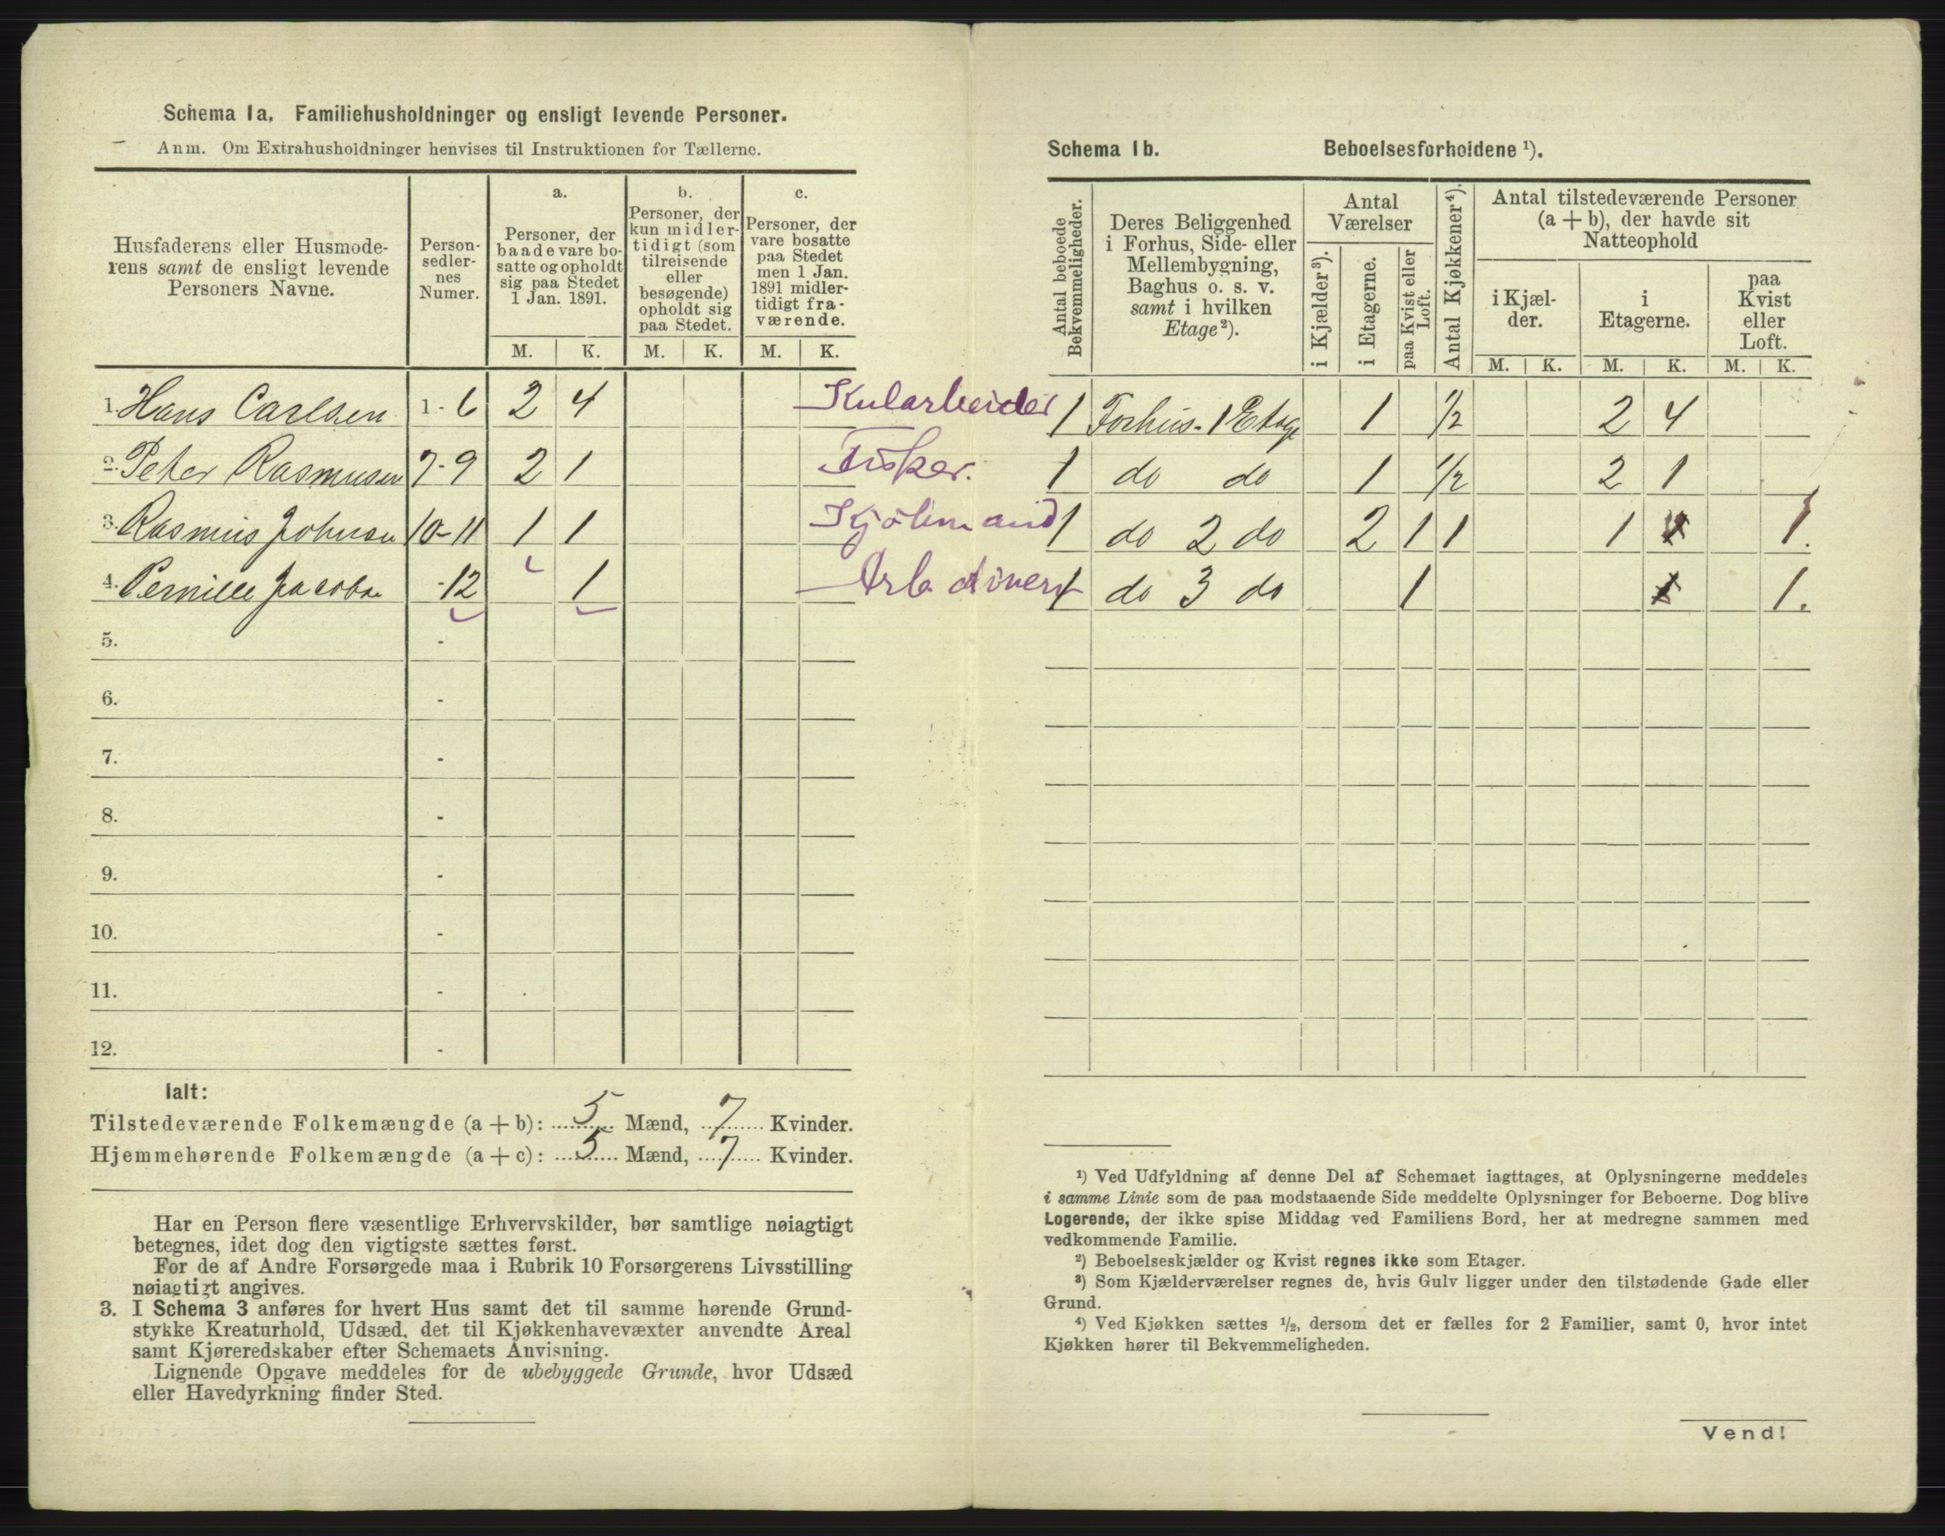 Schema 1a. Familiehusholdninger og ensligt levende Personer.
Anm. Om Extrahusholdninger henvises til Instruktionen for Tællerne.
Husfaderens eller Husmode-
rens samt de ensligt levende
Personers Navne.
Person-
sedler-
nes
Numer.
a.
Personer, der
baade vare bo-
satte og opholdt
sig paa Stedet
1 Jan. 1891.
b.
Personer, der
kun midler-
tidigt (som
tilreisende
eller
besøgende)
opholdt sig
paa Stedet.
c.
Personer, der
vare bosatte
paa Stedet
men 1 Jan.
1891 midler-
tidigt fra-
værende.
M. K. M. K. M. K.
1. Hans Carlsen 1-6 2 4 Kularbeider
2. Peter Rasmusen 7-9 2 1 Fisker.
3. Rasmus Johnsen 10-11 1 1
4. Pernille Jacobsen -12 1
5. -
6. -
7. -
8. -
9. -
10. -
11. -
12. -
Ialt:
Tilstedeværende Folkemængde (a + b): 5 Mænd, 7 Kvinder.
Hjemmehørende Folkemængde (a + c): 5 Mænd, 7 Kvinder.
Har en Person flere væsentlige Erhvervskilder, bør samtlige nøiagtigt
betegnes, idet dog den vigtigste sættes først.
For de af Andre Forsørgede maa i Rubrik 10 Forsørgerens Livsstilling
nøiagtigt angives.
3. I Schema 3 anføres for hvert Hus samt det til samme hørende Grund-
stykke Kreaturhold, Udsæd, det til Kjøkkenhavevæxter anvendte Areal
samt Kjøreredskaber efter Schemaets Anvisning.
Lignende Opgave meddeles for de ubebyggede Grunde, hvor Udsæd
eller Havedyrkning finder Sted.
Schema 1b. Beboelsesforholdene ¹).
Antal beboede
Bekvemmeligheder.
Deres Beliggenhed
i Forhus, Side- eller
Mellembygning,
Baghus o. s. v.
samt i hvilken
Etage²).
Antal
Værelser
i Kjælder³).
i Etagerne.
paa Kvist eller
Loft.
Antal Kjøkkener⁴).
Antal tilstedeværende Personer
(a + b), der havde sit
Natteophold
i Kjæl-
der.
i
Etagerne.
paa
Kvist
eller
Loft.
M. K. M. K. M. K.
1 Forhus - 1 Etage 1 1/2 2 4
1 do do 1 1/2 2 1
1 do 2 do 2 1 1 1 1.
1 do 3 do 1 1.
¹) Ved Udfyldning af denne Del af Schemaet iagttages, at Oplysningerne meddeles
i samme Linie som de paa modstaaende Side meddelte Oplysninger for Beboerne. Dog blive
Logerende, der ikke spise Middag ved Familiens Bord, her at medregne sammen med
vedkommende Familie.
²) Beboelseskjælder og Kvist regnes ikke som Etager.
³) Som Kjælderværelser regnes de, hvis Gulv ligger under den tilstødende Gade eller
Grund.
⁴) Ved Kjøkken sættes 1/2, dersom det er fælles for 2 Familier, samt 0, hvor intet
Kjøkken hører til Bekvemmeligheden.
Vend!